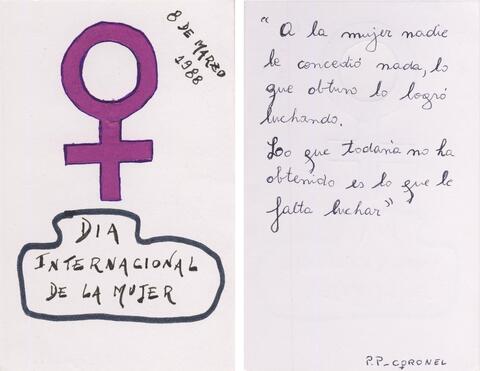 8 DE MARZO
1988
DIA
INTERNACIONAL
DE LA MUJER
"A la mujer nadie
le concedió nada, lo
que obtuvo lo logró
luchando.
Loo que todavía no ha
obtenido es lo que le
falta luchar"
P.P.-CORONEL